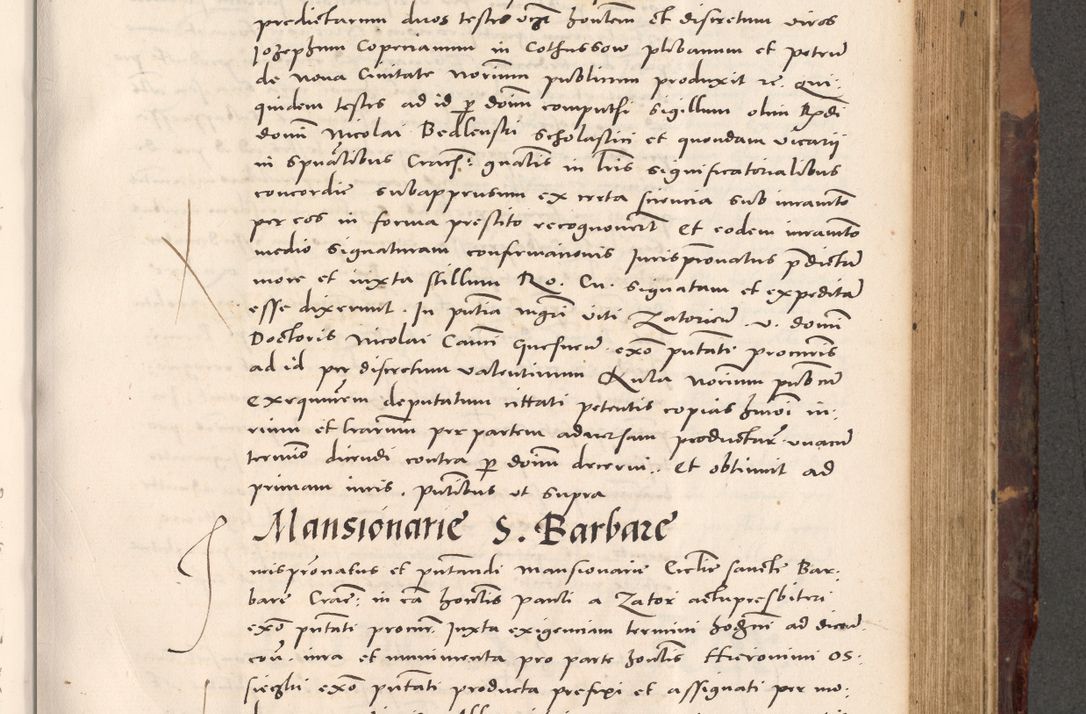 predictarum duos testes vizt honlem et discretum viros
Jozephum Coperiamum in Cothussow plebanum et petrum
de Nova Civitate Norium publicum produxit re. Qui.
quidem testes ad id p domi computsi sigillum olim Rpdi
domi Nicolai Bedlenski scholastici et quondam vicarii
in spualibus Cracn. gnalis in lris significatorialibus
concordie subappressum ex certa sciencia sub iuramto
per eos in forma prestito recognoverut Et eodem iuramto
medio signaturam confirmationis Jurispronatus pdictu
more et iuxta stillum Ro. Cu. signatam et expedita
esse dixerunt. In pntia mgri viti Zatorien. v. domi
Doctoris Nicolai exo putati procuris
ad id per discretum valentinum Kula Norium publicu
exequurem deputatum cittati petentis copias hmoi in.
rium et lrarum per partem adversam productar. unacu
termio dicendi contra p domi decerni. Et obtinuit ad
primam iuris. putibus ut supra
Mansionarie S. Barbare
iurispronatus et putandi mansionarie Ecclie sancte Bar.
bare Crac. in ca honlis pauli a Zator actu presbiteri
exo putati procur. Juxta exigenciam termini hodigni ad dicend
con. iura et munimenta pro parte honlis Hieronimi Os.
sieczki exo putati producta prefixi et assignati per mo.